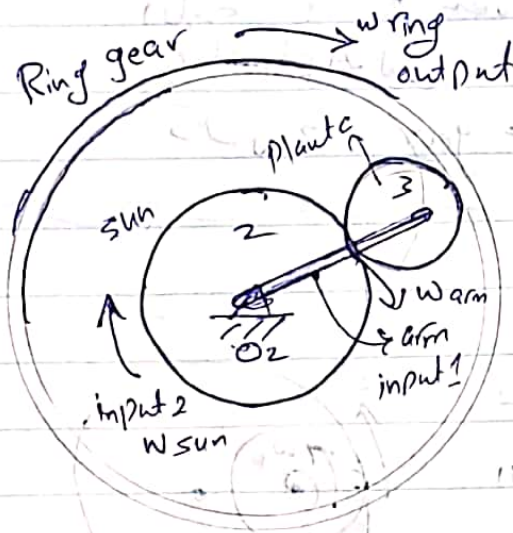 Ring gear
w ring
output
planta
3
sun
2
w arm
arm
input 1
O2
input 2
W sun